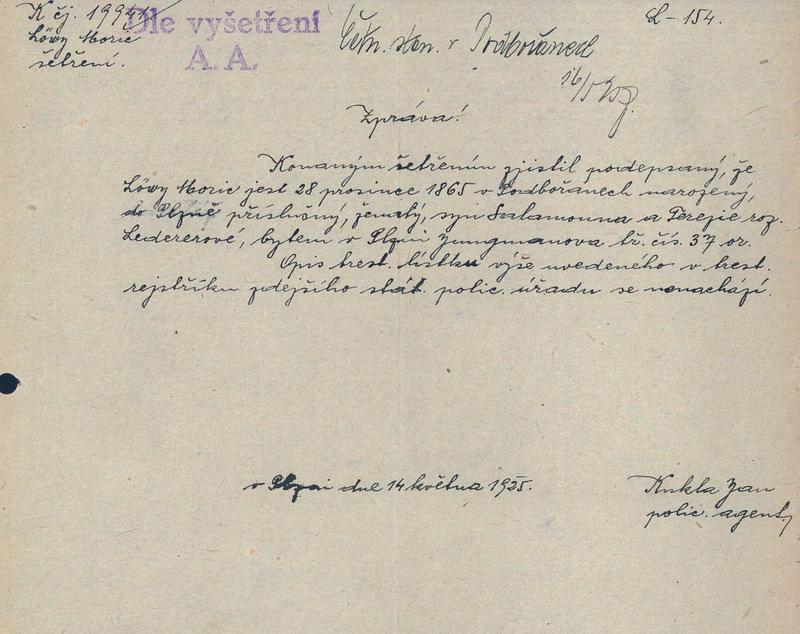 K čj. 19941
Löwy Moric
šetření.
Dle vyšetření
A. A.
Četn. stan. v Podbořanech
L - 154.
16/5
Zpráva!
Konaným šetřením zjistil podepsaný, že
Löwy Moric jest 28 prosince 1865 v Podbořanech narozený,
do Plzně příslušný, ženatý, syn Salamouna a Terezie roz.
Ledererové, bytem v Plzni Jungmanova tř. čís. 37 or.
Opis trest. lístku výše uvedeného v trest.
rejstříku zdejšího stát. polic. úřadu se nenachází.
v Plzni dne 14 května 1925.
Kukla Jan
polic. agent.